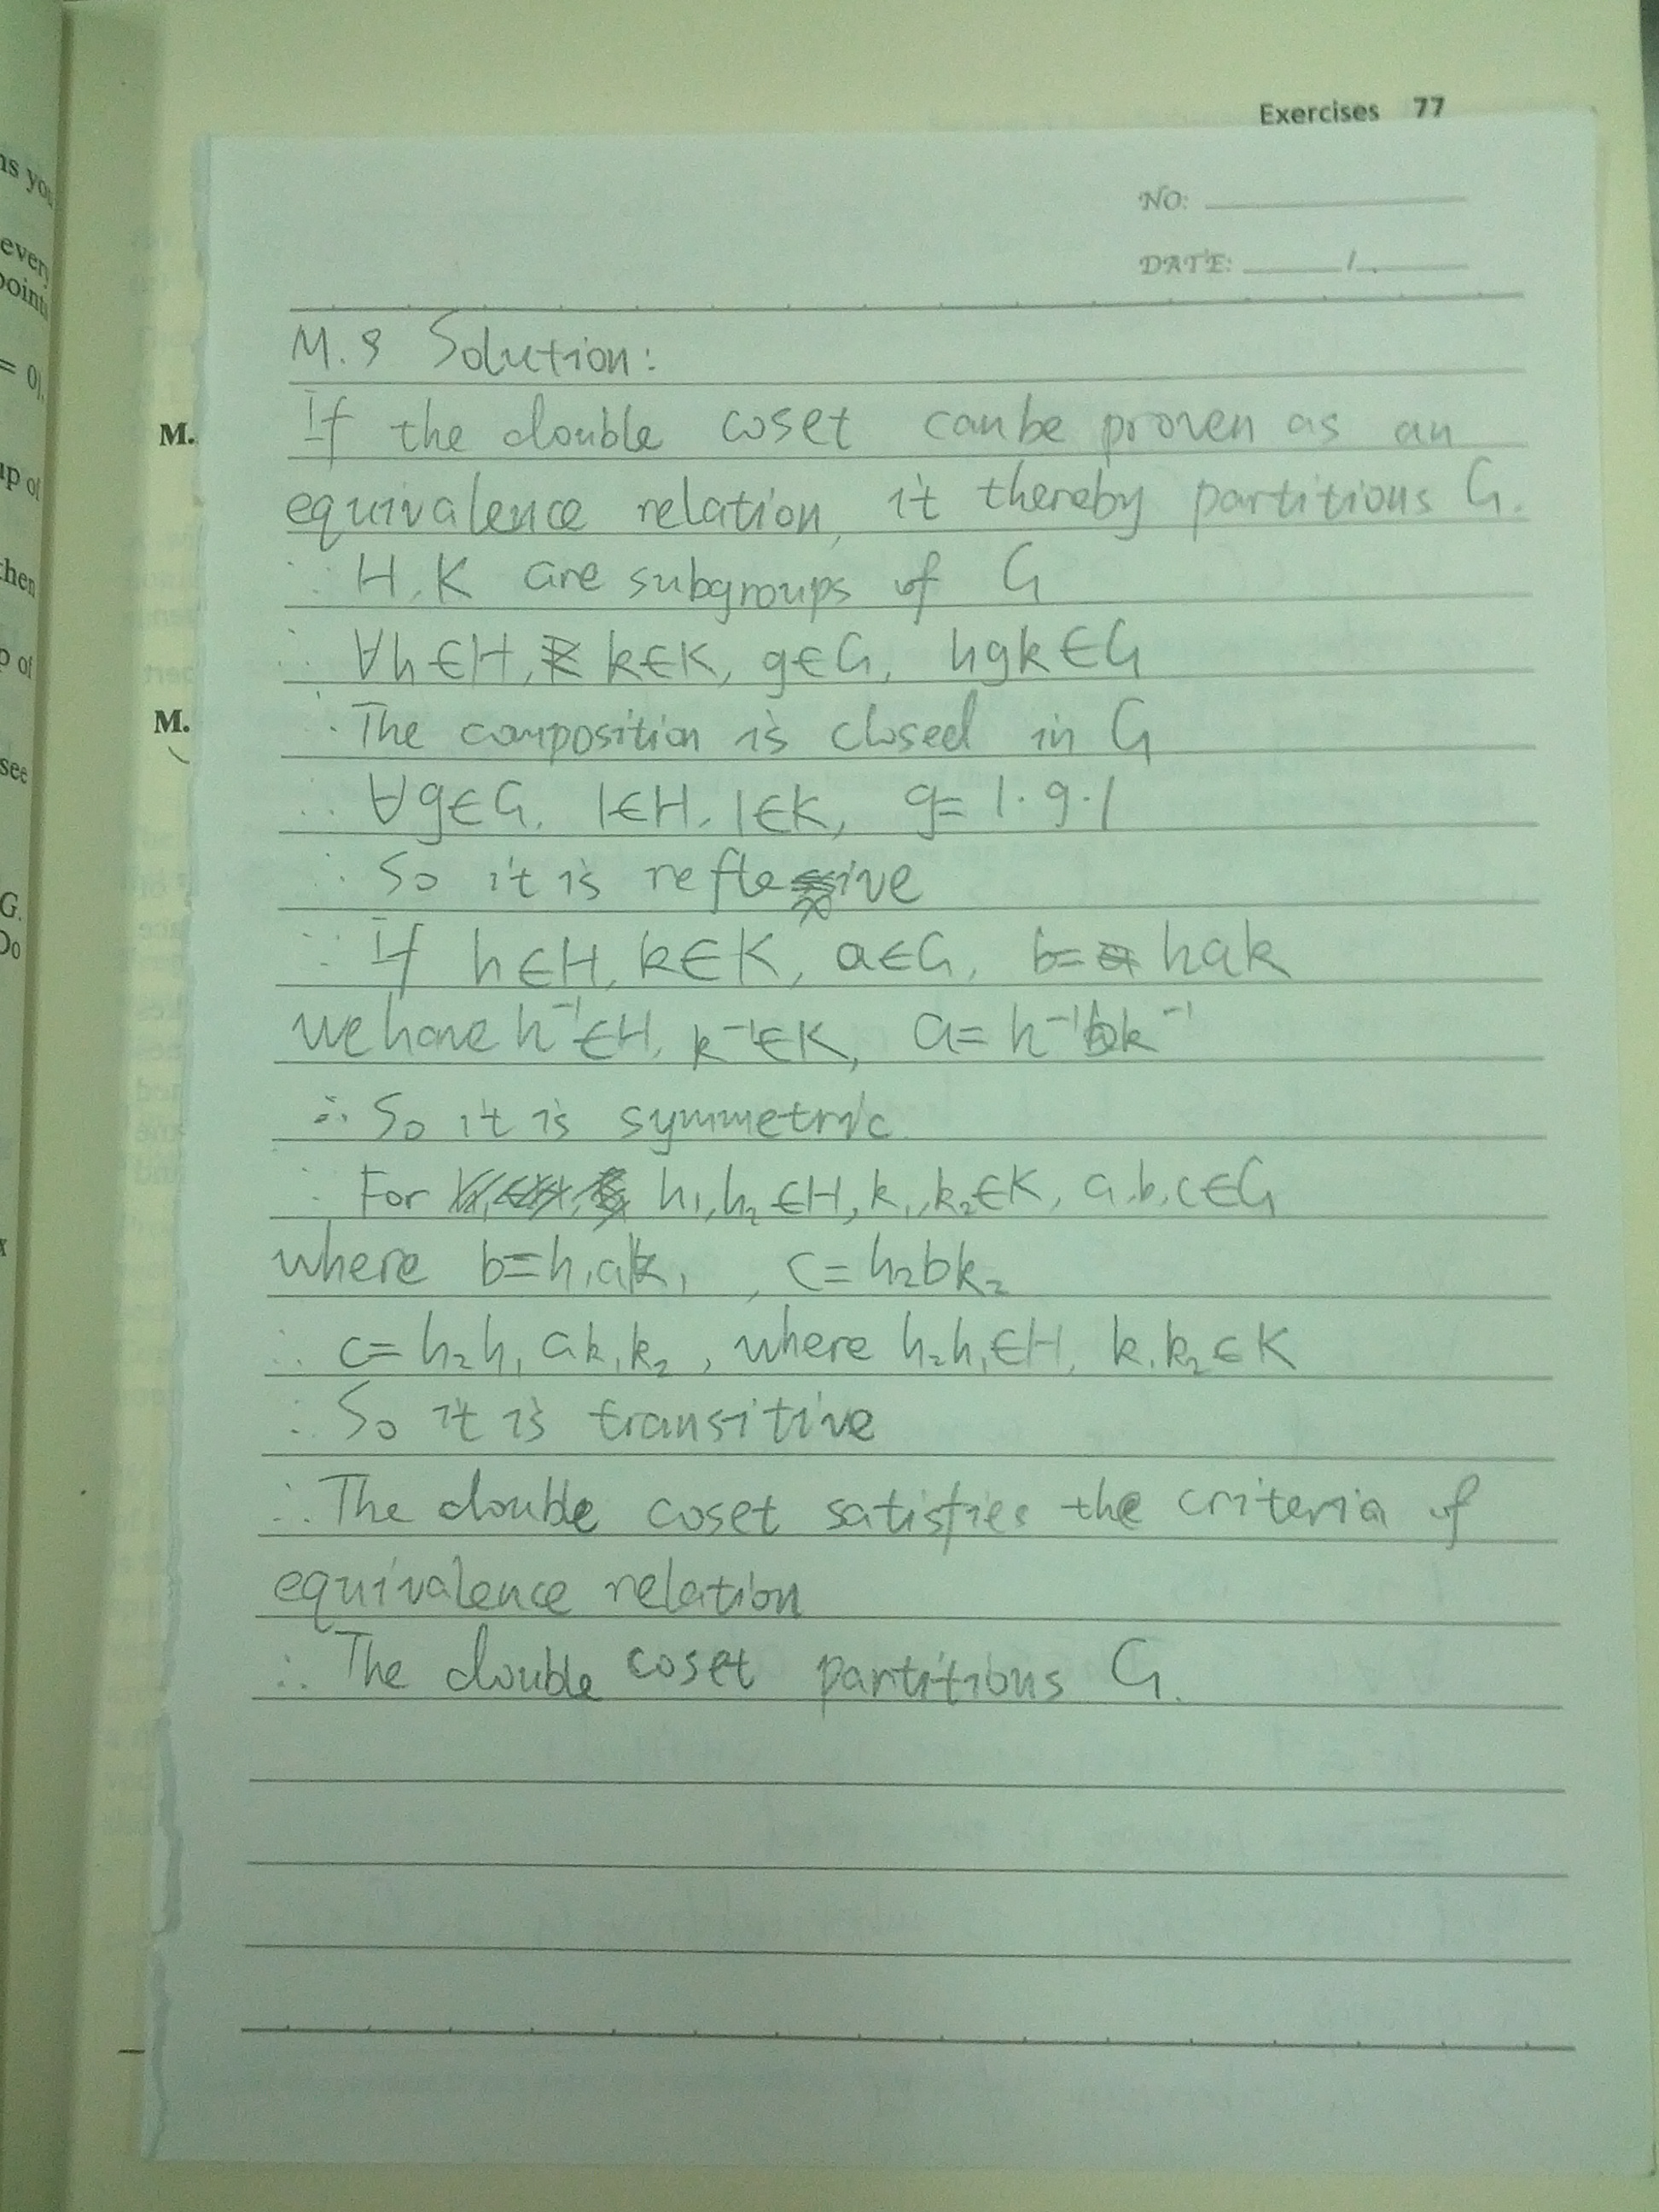 Exercises 77
NO:
DATE: /
M.9 Solution:
If the double coset can be proven as an
equivalence relation, it thereby partitions G.
∵ H, K are subgroups of G
∴ ∀h∈H, k∈K, g∈G, hgk∈G
∴ The composition is closed in G
∵ ∀g∈G, 1∈H, 1∈K, g=1·g·1
∴ So it is reflexive
∵ If h∈H, k∈K, a∈G, b=hak
we have h⁻¹∈H, k⁻¹∈K, a=h⁻¹bk⁻¹
∴ So it is symmetric.
∵ For h₁,h₂∈H, k₁,k₂∈K, a,b,c∈G
where b=h₁ak₁, c=h₂bk₂
∴ c=h₂h₁ak₁k₂, where h₂h₁∈H, k₁k₂∈K
∴ So it is transitive
∴ The double coset satisfies the criteria of
equivalence relation
∴ The double coset partitions G.
M.
M.
ns you
every
points
= 0
up of
then
p of
see
G.
Do